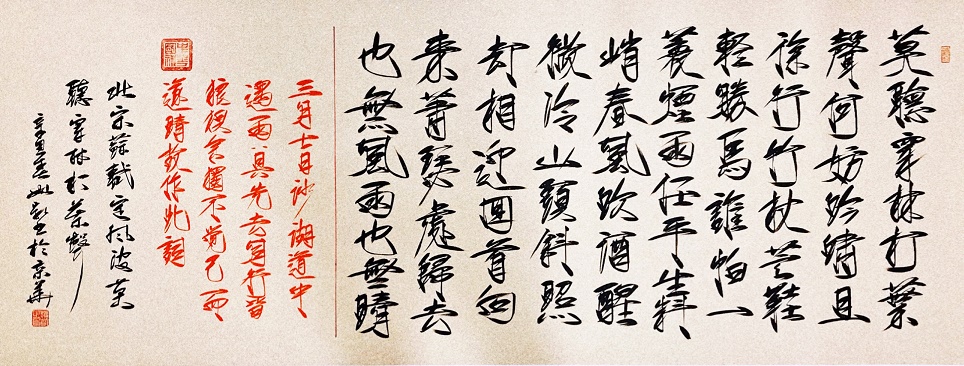 莫聽穿林打葉
聲何妨吟嘯且
徐行竹杖芒鞋
輕勝馬誰怕一
蓑煙雨任平生料
峭春風吹酒醒
微冷山頭斜照
却相迎回首向
來蕭瑟處歸去
也無風雨也無晴
三月七日沙湖道中
遇雨具先去同行皆
狼狽余獨不覺已而
遂晴故作此詞
此宋蘇軾定風波莫
聽穿林打葉聲
辛丑春書於京華